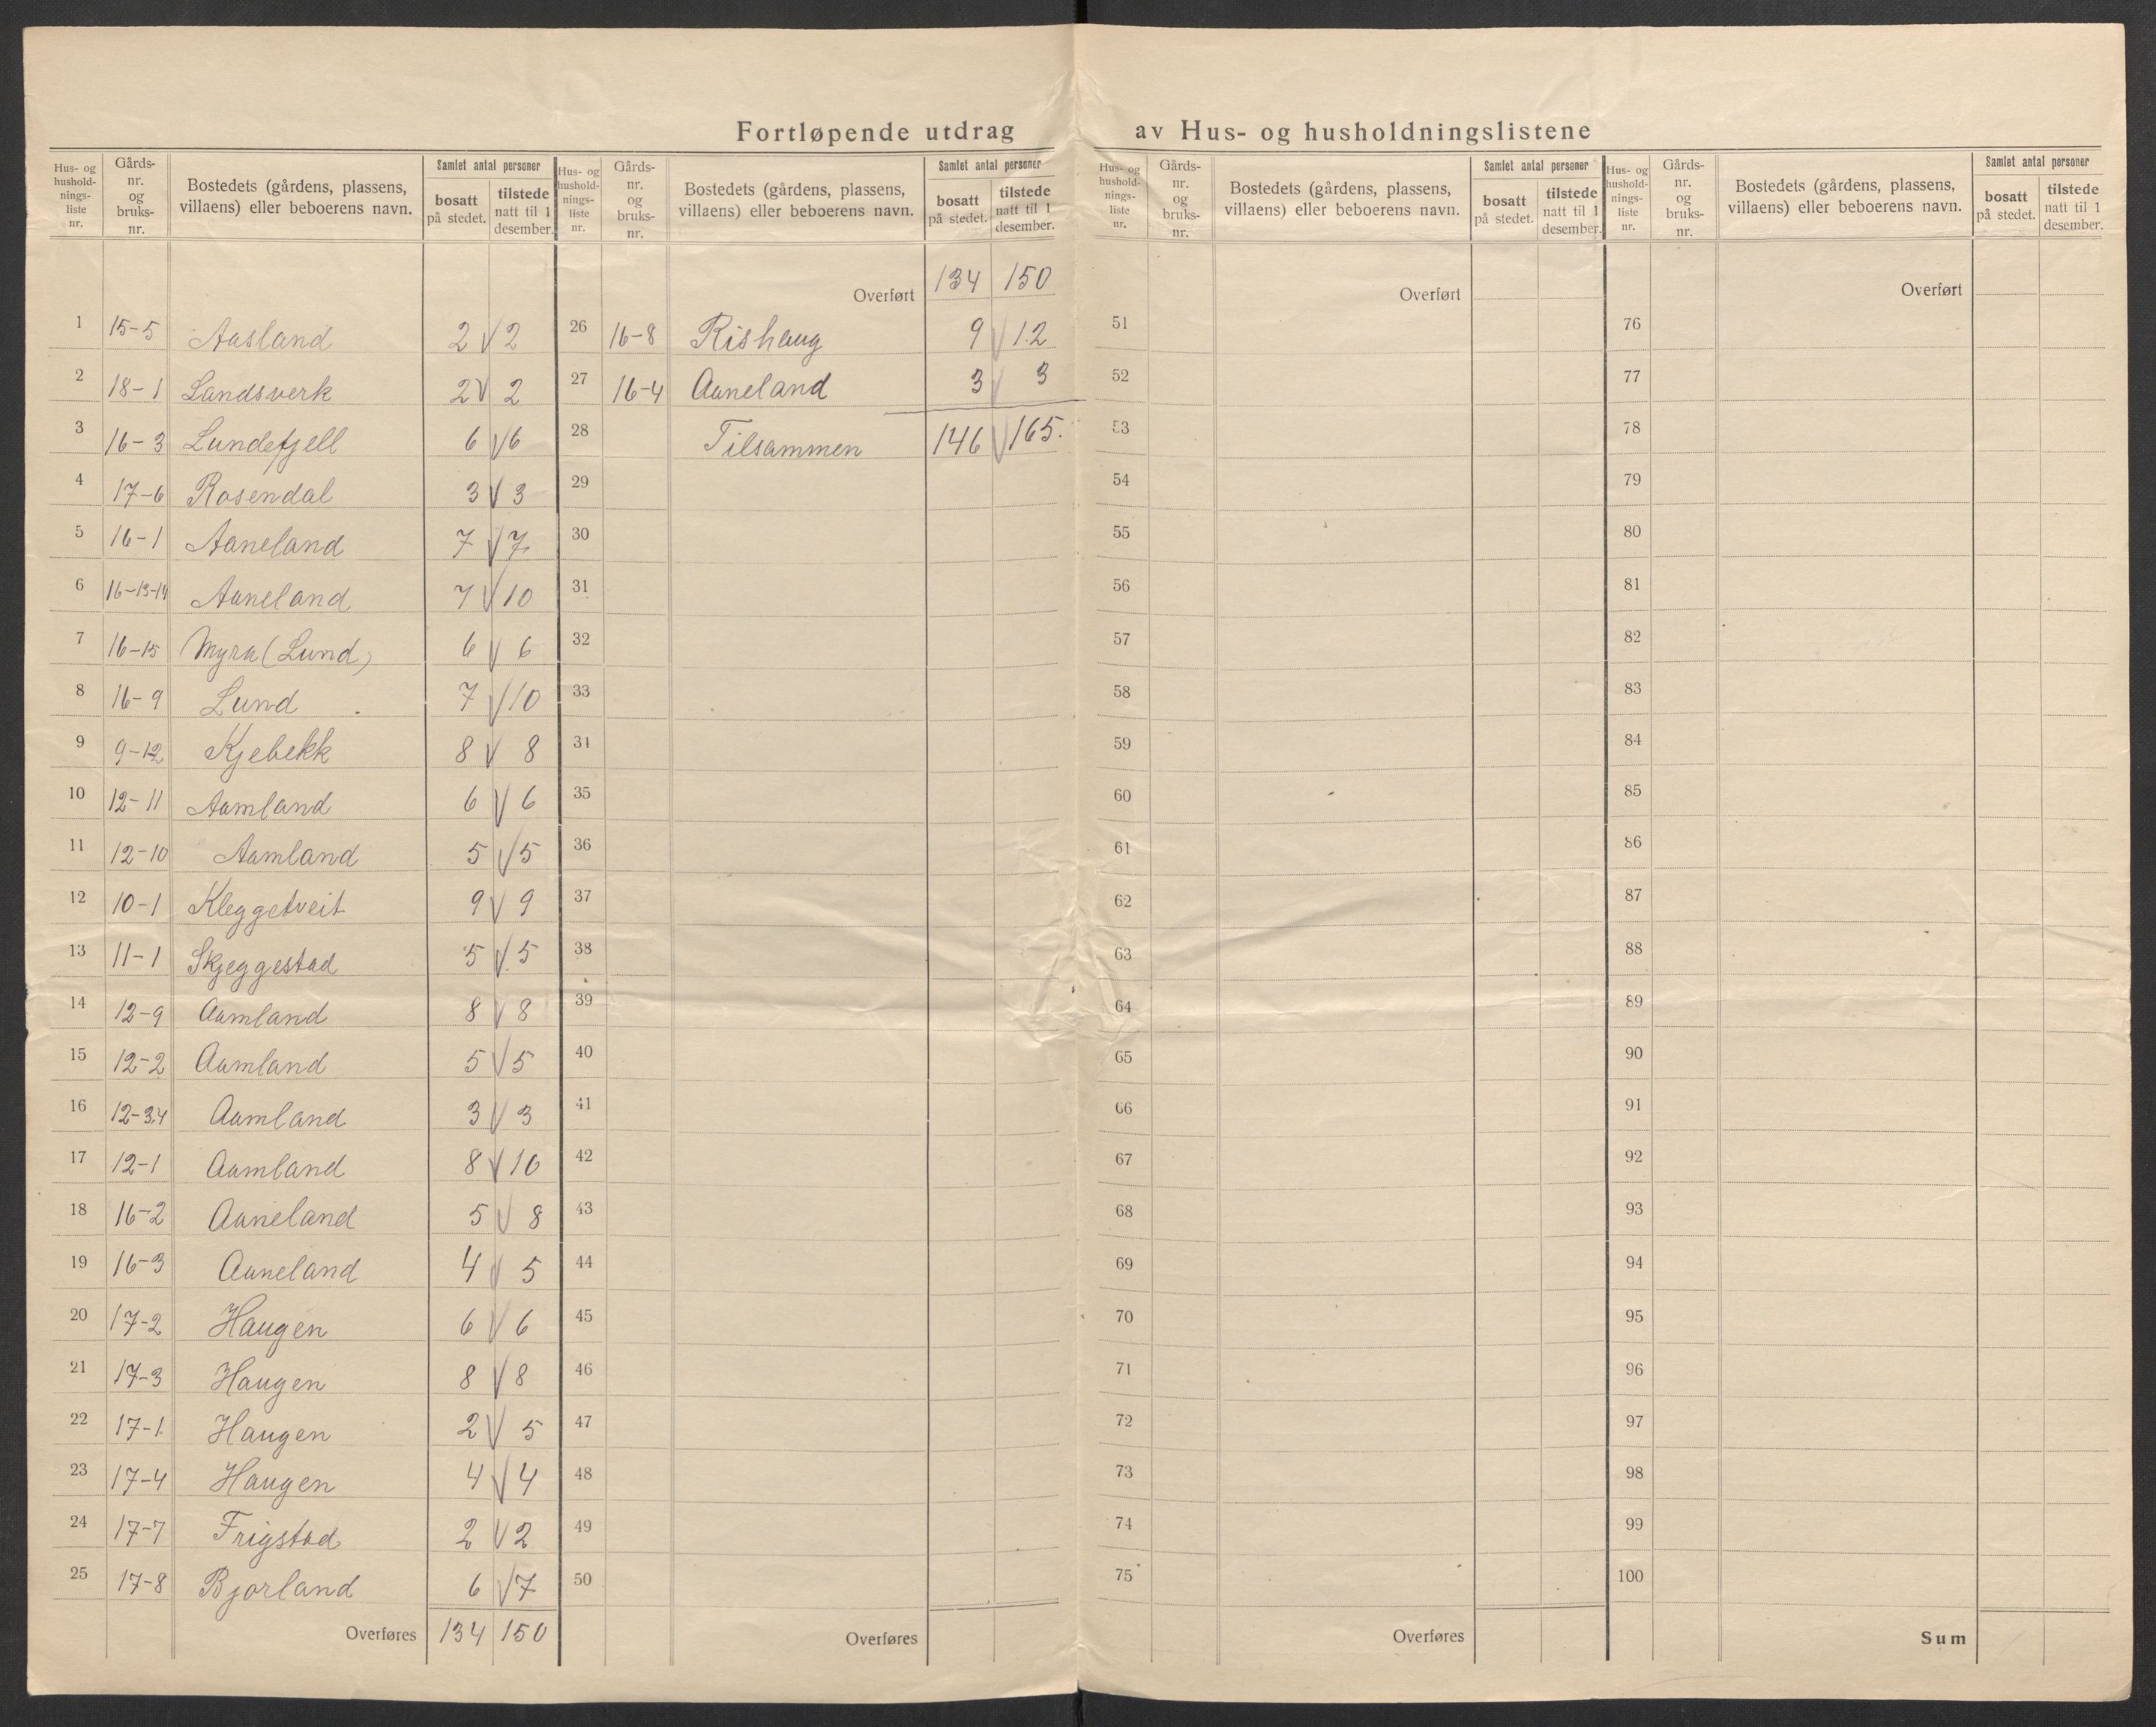 Fortløpende utdrag av Hus- og husholdningslistene
Hus- og husholdnings-liste nr. Gårds-nr. og bruks-nr. Bostedets (gårdens, plassens, villaens) eller beboerens navn. Samlet antal personer bosatt på stedet. tilstede natt til 1 desember.
1 15-5 Aasland 2 V 2
2 18-1 Landsverk 2 V 2
3 16-3 Lundefjell 6 V 6
4 17-6 Rosendal 3 V 3
5 16-1 Aaneland 7 V 7
6 16-13-14 Aaneland 7 V 10
7 16-15 Myra (Lund) 6 V 6
8 16-9 Lund 7 V 10
9 9-12 Kjebekk 8 V 8
10 12-11 Aamland 6 V 6
11 12-10 Aamland 5 V 5
12 10-1 Kleggetveit 9 V 9
13 11-1 Skjeggestad 5 V 5
14 12-9 Aamland 8 V 8
15 12-2 Aamland 5 V 5
16 12-3,4 Aamland 3 V 3
17 12-1 Aamland 8 V 10
18 16-2 Aaneland 5 V 8
19 16-3 Aaneland 4 V 5
20 17-2 Haugen 6 V 6
21 17-3 Haugen 8 V 8
22 17-1 Haugen 2 V 5
23 17-4 Haugen 4 V 4
24 17-7 Frigstad 2 V 2
25 17-8 Bjorland 6 V 7
Overføres 134 150
Hus- og husholdnings-liste nr. Gårds-nr. og bruks-nr. Bostedets (gårdens, plassens, villaens) eller beboerens navn. Samlet antal personer bosatt på stedet. tilstede natt til 1 desember.
Overført 134 150
26 16-8 Rishaug 9 V 12
27 16-4 Aaneland 3 V 3
28 Tilsammen 146 V 165.
29
30
31
32
33
34
35
36
37
38
39
40
41
42
43
44
45
46
47
48
49
50
Overføres
Hus- og husholdnings-liste nr. Gårds-nr. og bruks-nr. Bostedets (gårdens, plassens, villaens) eller beboerens navn. Samlet antal personer bosatt på stedet. tilstede natt til 1 desember.
Overført
51
52
53
54
55
56
57
58
59
60
61
62
63
64
65
66
67
68
69
70
71
72
73
74
75
Overføres
Hus- og husholdnings-liste nr. Gårds-nr. og bruks-nr. Bostedets (gårdens, plassens, villaens) eller beboerens navn. Samlet antal personer bosatt på stedet. tilstede natt til 1 desember.
Overført
76
77
78
79
80
81
82
83
84
85
86
87
88
89
90
91
92
93
94
95
96
97
98
99
100
Sum